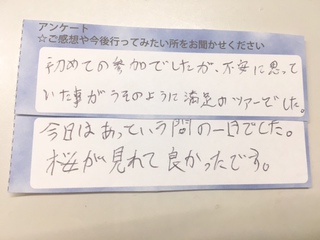 アンケート
☆ご感想や今後行ってみたい所をお聞かせください
初めての参加でしたが、不安に思って
いた事がうそのように満足のツアーでした。
今日はあっていう間の一日でした。
桜が見れて良かったです。